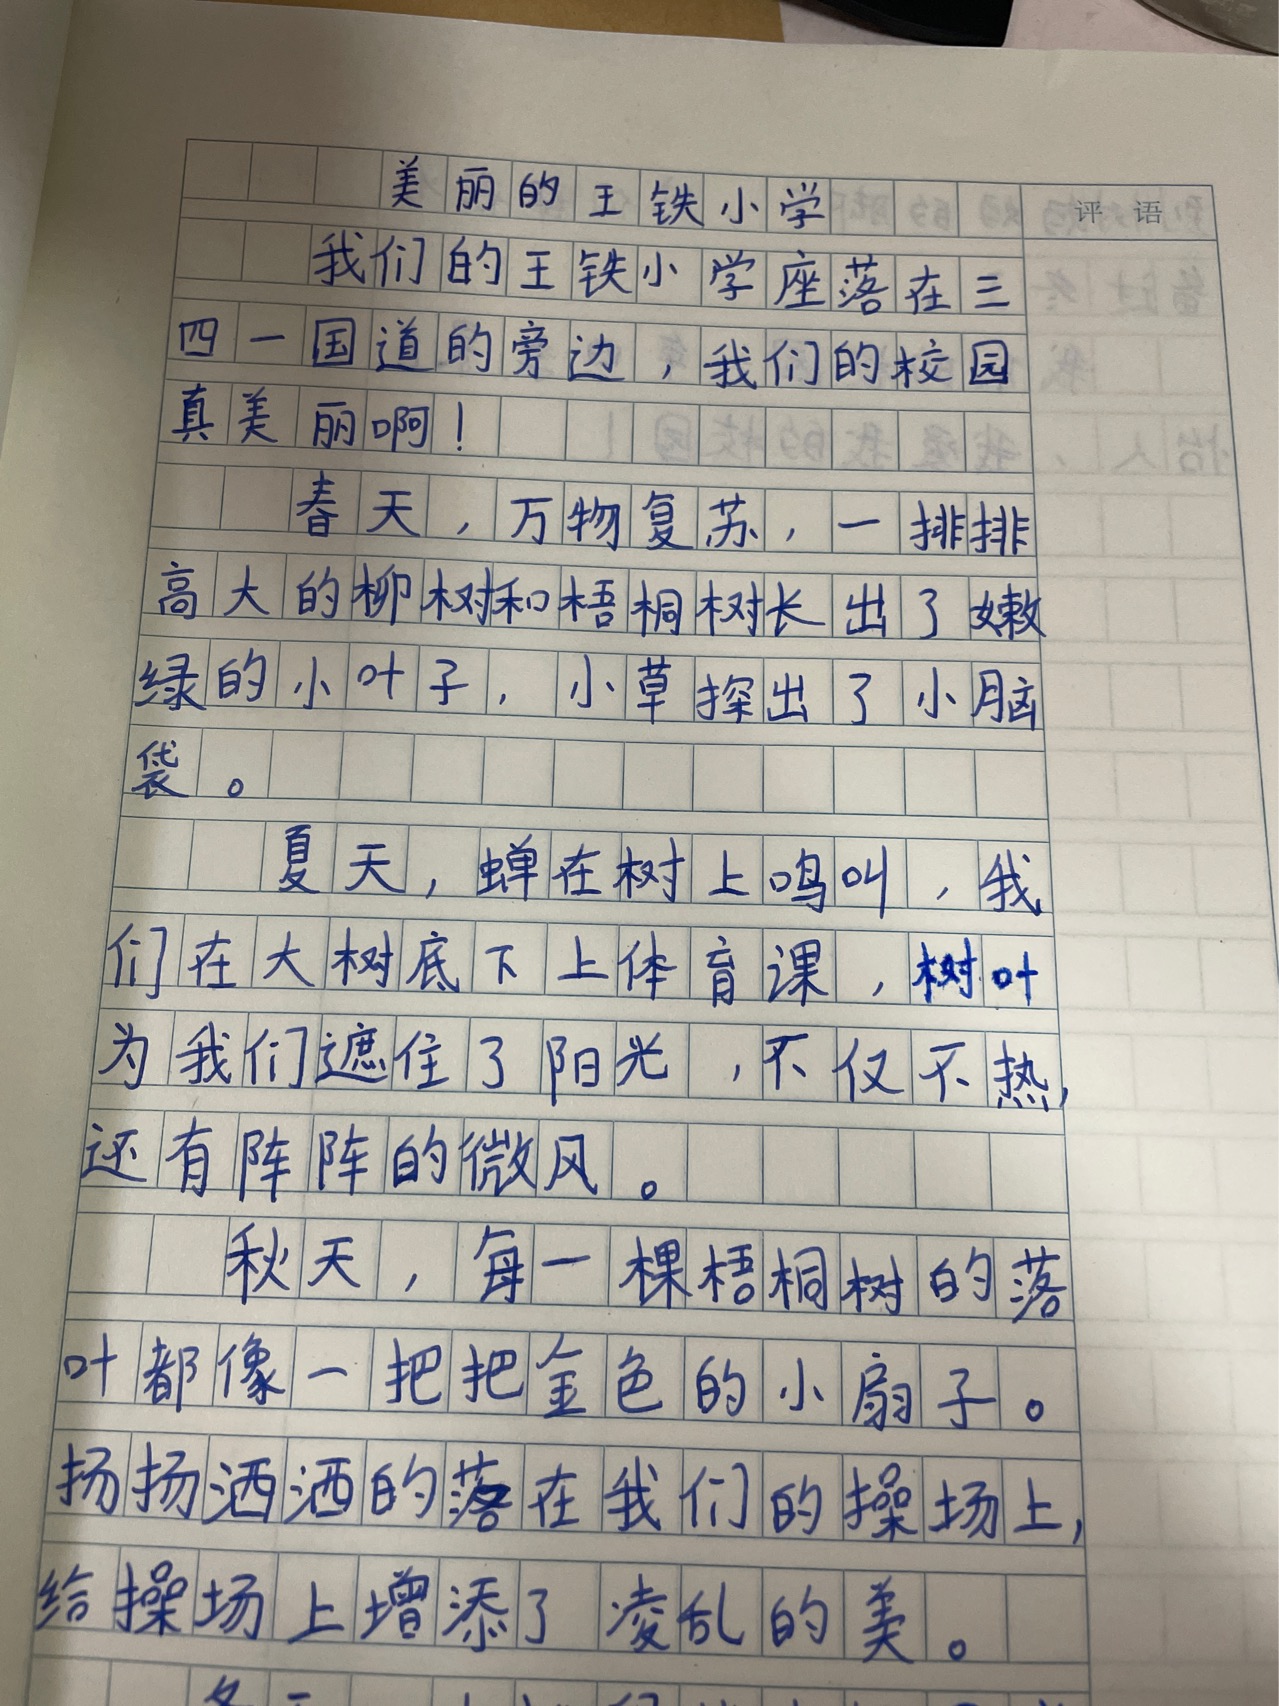 美丽的王铁小学
评语
我们的王铁小学座落在三
四一国道的旁边，我们的校园
真美丽啊！
春天，万物复苏，一排排
高大的柳树和梧桐树长出了嫩
绿的小叶子，小草探出了小脑
袋。
夏天，蝉在树上鸣叫，我
们在大树底下上体育课，树叶
为我们遮住了阳光，不仅不热，
还有阵阵的微风。
秋天，每一棵梧桐树的落
叶都像一把把金色的小扇子。
扬扬洒洒的落在我们的操场上，
给操场上增添了凌乱的美。